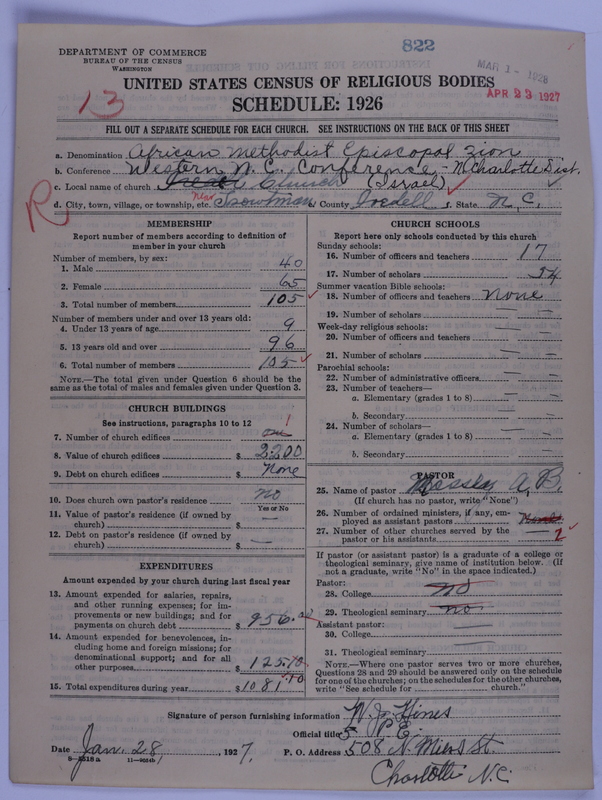 822
DEPARTMENT OF COMMERCE
BUREAU OF THE CENSUS
WASHINGTON
MAR 1 - 1928
APR 23 1927
13
UNITED STATES CENSUS OF RELIGIOUS BODIES
SCHEDULE: 1926
FILL OUT A SEPARATE SCHEDULE FOR EACH CHURCH. SEE INSTRUCTIONS ON THE BACK OF THIS SHEET
a. Denomination African Methodist Episcopal Zion
b. Conference Western N.C. Conference - N. Charlotte Dist.
c. Local name of church Church (Israel)
R
d. City, town, village, or township, etc. Near Troutman e. County Iredell f. State N.C.
MEMBERSHIP
Report number of members according to definition of member in your church
Number of members, by sex:
1. Male 40
2. Female 65
3. Total number of members 105
Number of members under and over 13 years old:
4. Under 13 years of age 9
5. 13 years old and over 96
6. Total number of members 105
NOTE.—The total given under Question 6 should be the same as the total of males and females given under Question 3.
CHURCH BUILDINGS
See instructions, paragraphs 10 to 12
7. Number of church edifices one 1
8. Value of church edifices $ 2200
9. Debt on church edifices $ None
10. Does church own pastor's residence No
Yes or No
11. Value of pastor's residence (if owned by church) $ —
12. Debt on pastor's residence (if owned by church) $ —
EXPENDITURES
Amount expended by your church during last fiscal year
13. Amount expended for salaries, repairs, and other running expenses; for improvements or new buildings; and for payments on church debt $ 956.00
14. Amount expended for benevolences, including home and foreign missions; for denominational support; and for all other purposes $ 125.70
15. Total expenditures during year $ 1081.70
CHURCH SCHOOLS
Report here only schools conducted by this church
Sunday schools:
16. Number of officers and teachers 17
17. Number of scholars 54
Summer vacation Bible schools:
18. Number of officers and teachers None
19. Number of scholars —
Week-day religious schools:
20. Number of officers and teachers —
21. Number of scholars —
Parochial schools:
22. Number of administrative officers —
23. Number of teachers—
a. Elementary (grades 1 to 8) —
b. Secondary —
24. Number of scholars—
a. Elementary (grades 1 to 8) —
b. Secondary —
PASTOR
25. Name of pastor Massey A. B.
(If church has no pastor, write "None")
26. Number of ordained ministers, if any, employed as assistant pastors None
27. Number of other churches served by the pastor or his assistants 2
If pastor (or assistant pastor) is a graduate of a college or theological seminary, give name of institution below. (If not a graduate, write "No" in the space indicated.)
Pastor:
28. College No
29. Theological seminary No
Assistant pastor:
30. College —
31. Theological seminary —
NOTE.—Where one pastor serves two or more churches, Questions 28 and 29 should be answered only on the schedule for one of the churches; on the schedules for the other churches, write "See schedule for church."
Signature of person furnishing information W. J. Hines
Official title P. E.
Date Jan. 28, 1927. P. O. Address 508 N. Miers St.
8-5518a 11-9054b
Charlotte N.C.